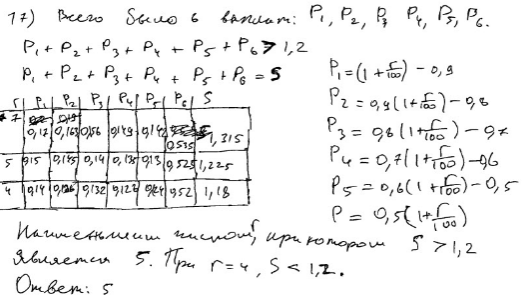 17) Всего было 6 выплат: P₁, P₂, P₃ P₄, P₅, P₆.
P₁ + P₂ + P₃ + P₄ + P₅ + P₆ > 1,2
P₁ + P₂ + P₃ + P₄ + P₅ + P₆ = S
r P₁ P₂ P₃ P₄ P₅ P₆ S
7 0,17 0,163 0,56 0,149 0,142 0,535 1,315
5 0,15 0,145 0,14 0,135 0,13 0,525 1,225
4 0,14 0,132 0,128 0,52 1,18
P₁ = (1 + r/100) - 0,9
P₂ = 0,9(1 + r/100) - 0,8
P₃ = 0,8(1 + r/100) - 0,7
P₄ = 0,7(1 + r/100) - 0,6
P₅ = 0,6(1 + r/100) - 0,5
P = 0,5(1 + r/100)
Наименьшим числом r, при котором S > 1,2
является 5. При r = 4, S < 1,2.
Ответ: 5